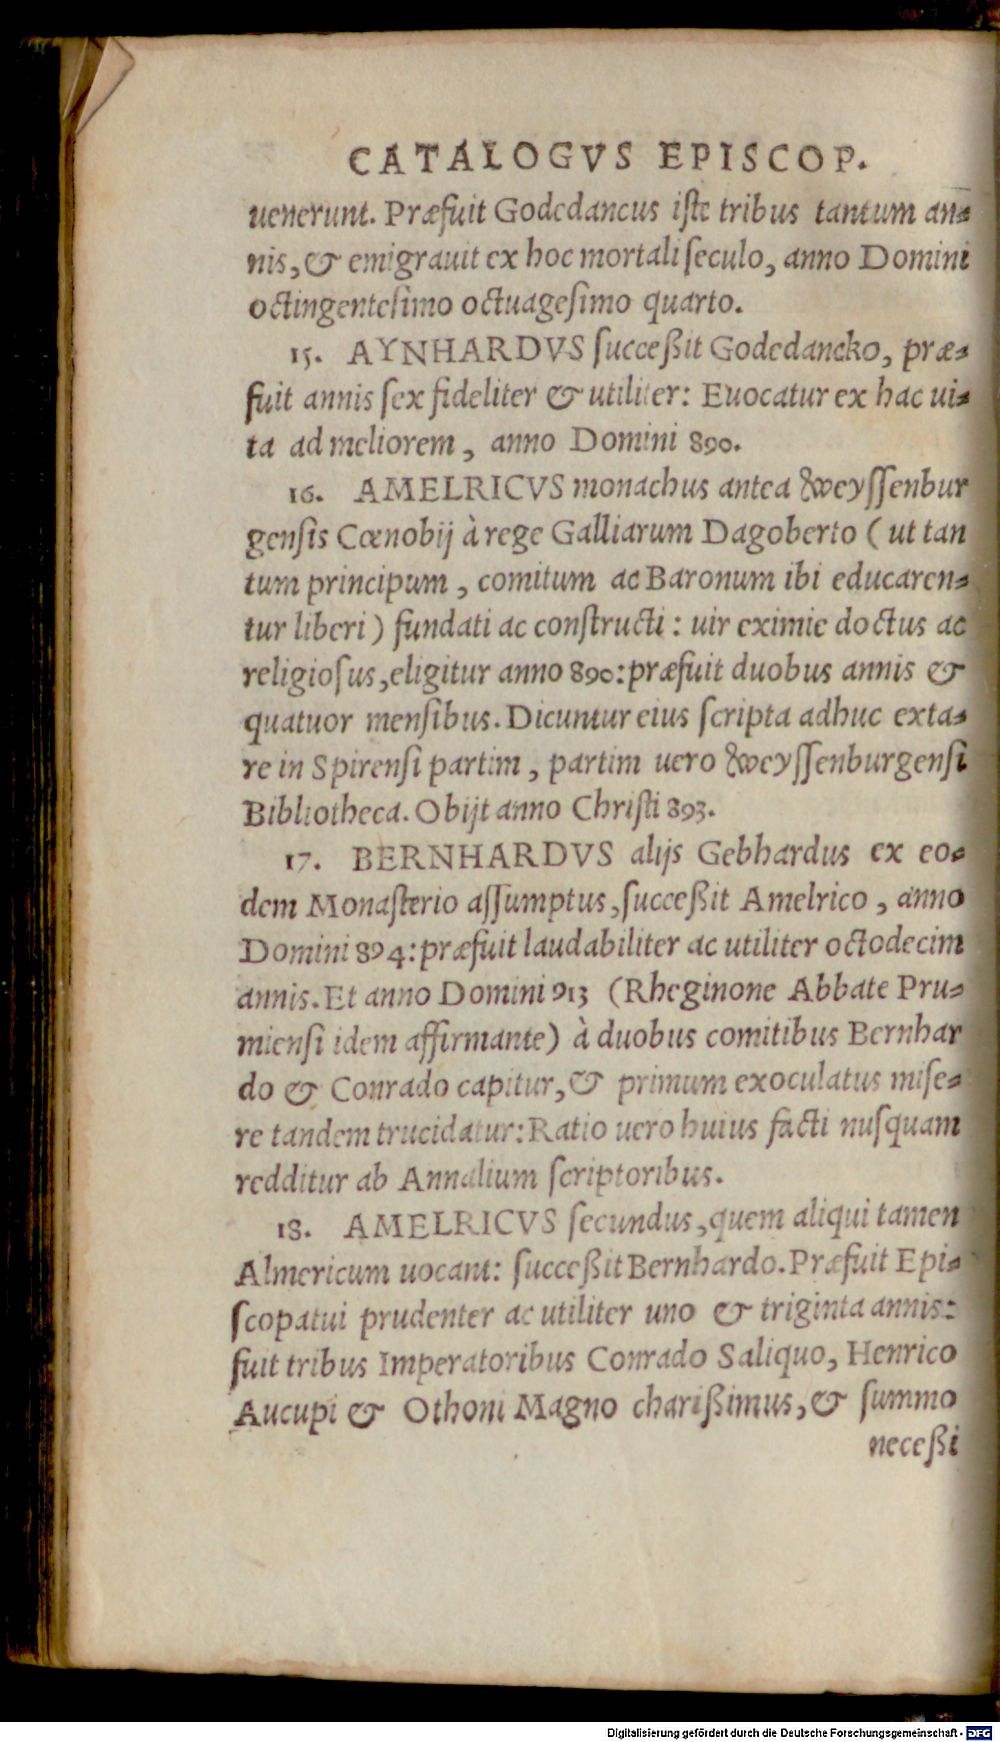 CATALOGVS EPISCOP.
uenerunt. Præfuit Godedancus iſte tribus tantum an-
nis, & emigrauit ex hoc mortali ſeculo, anno Domini
octingenteſimo octuageſimo quarto.
15. AYNHARDVS ſucceßit Godedancko, præ-
fuit annis ſex fideliter & utiliter: Euocatur ex hac ui-
ta ad meliorem, anno Domini 890.
16. AMELRICVS monachus antea Weyſſenbur
genſis Cœnobij à rege Galliarum Dagoberto (ut tan
tum principum, comitum ac Baronum ibi educaren-
tur liberi) fundati ac conſtructi: uir eximie doctus ac
religioſus, eligitur anno 890: præfuit duobus annis &
quatuor menſibus. Dicuntur eius ſcripta adhuc exta-
re in Spirenſi partim, partim uero Weyſſenburgenſi
Bibliotheca. Obijt anno Chriſti 893.
17. BERNHARDVS alijs Gebhardus ex eo-
dem Monaſterio aſſumptus, ſucceßit Amelrico, anno
Domini 894: præfuit laudabiliter ac utiliter octodecim
annis. Et anno Domini 913 (Rheginone Abbate Pru-
mienſi idem affirmante) à duobus comitibus Bernhar
do & Conrado capitur, & primum exoculatus miſe-
re tandem trucidatur: Ratio uero huius facti nuſquam
redditur ab Annalium ſcriptoribus.
18. AMELRICVS ſecundus, quem aliqui tamen
Almericum uocant: ſucceßit Bernhardo. Præfuit Epi-
ſcopatui prudenter ac utiliter uno & triginta annis:
fuit tribus Imperatoribus Conrado Saliquo, Henrico
Aucupi & Othoni Magno charißimus, & ſummo
neceßi
Digitalisierung gefördert durch die Deutsche Forschungsgemeinschaft - DFG